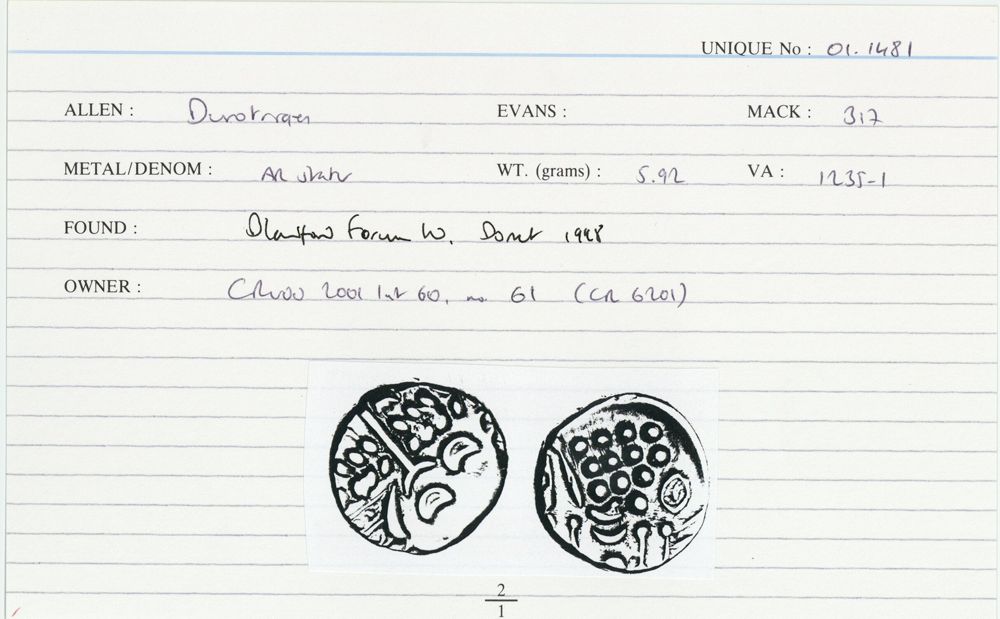 UNIQUE No : 01.1481
ALLEN : Durotriges EVANS : MACK : 317
METAL/DENOM : AR stater WT. (grams) : 5.92 VA : 1235-1
FOUND : Blandford Forum W. Dorset 1998
OWNER : CR 2001 list 60, no. 61 (CR 6201)
2
1